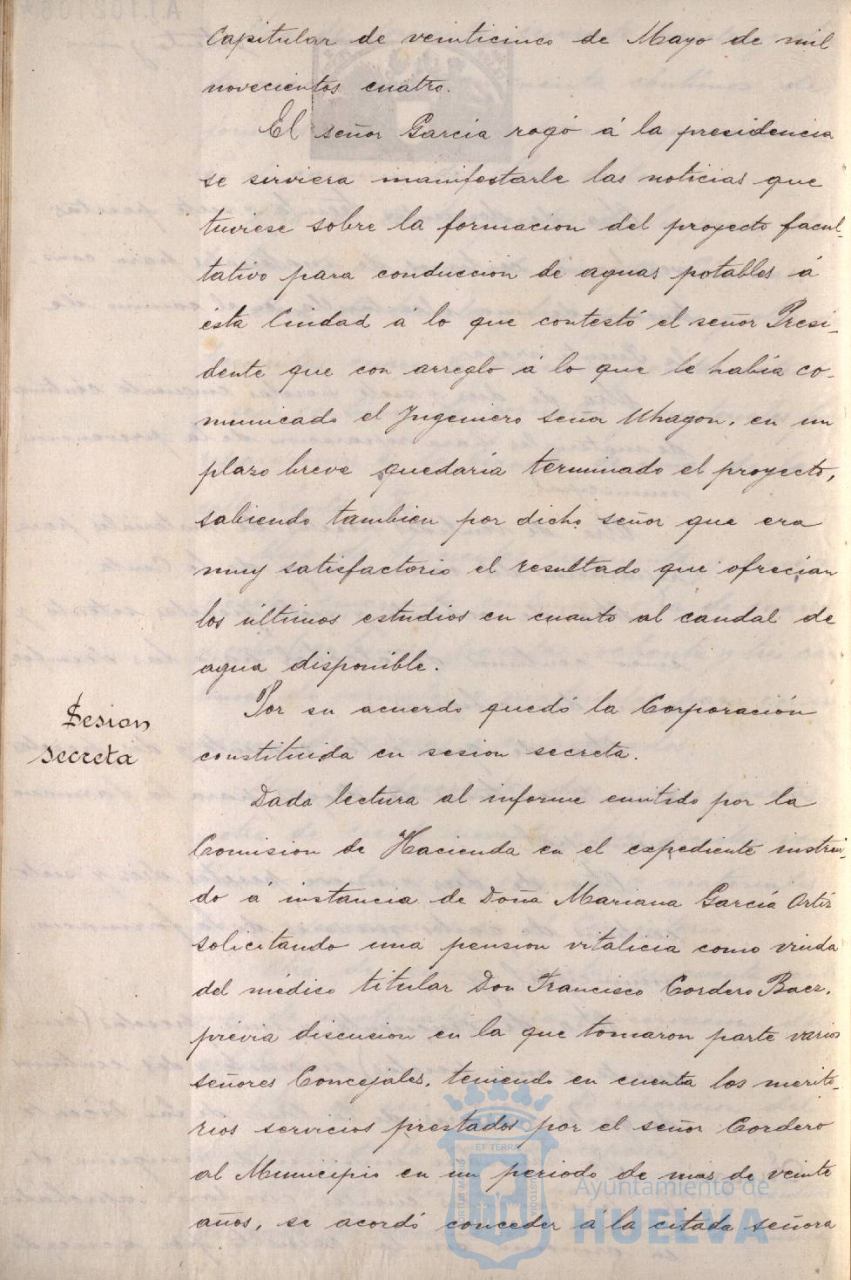 Capitular de veinticinco de Mayo de mil
novecientos cuatro.
El señor García rogó á la presidencia
se sirviera manifestarle las noticias que
tuviese sobre la formacion del proyecto facul-
tativo para conduccion de aguas potables á
ésta Ciudad á lo que contestó el señor Presi-
dente que con arreglo á lo que le había co-
municado el Ingeniero señor Uhagon, en un
plazo breve quedaría terminado el proyecto,
sabiendo tambien por dicho señor que era
muy satisfactorio el resultado que ofrecian
los últimos estudios en cuanto al caudal de
agua disponible.
Sesion
secreta
Por su acuerdo quedó la Corporación
constituida en sesion secreta.
Dada lectura al informe emitido por la
Comision de Hacienda en el expediente instrui-
do á instancia de Doña Mariana García Ortiz
solicitando una pension vitalicia como viuda
del médico titular Don Francisco Cordero Baez,
prévia discusion en la que tomaron parte varios
señores Concejales, teniendo en cuenta los merito-
rios servicios prestados por el señor Cordero
al Municipio en un periodo de mas de veinte
años, se acordó conceder á la citada señora
Ayuntamiento de
HUELVA